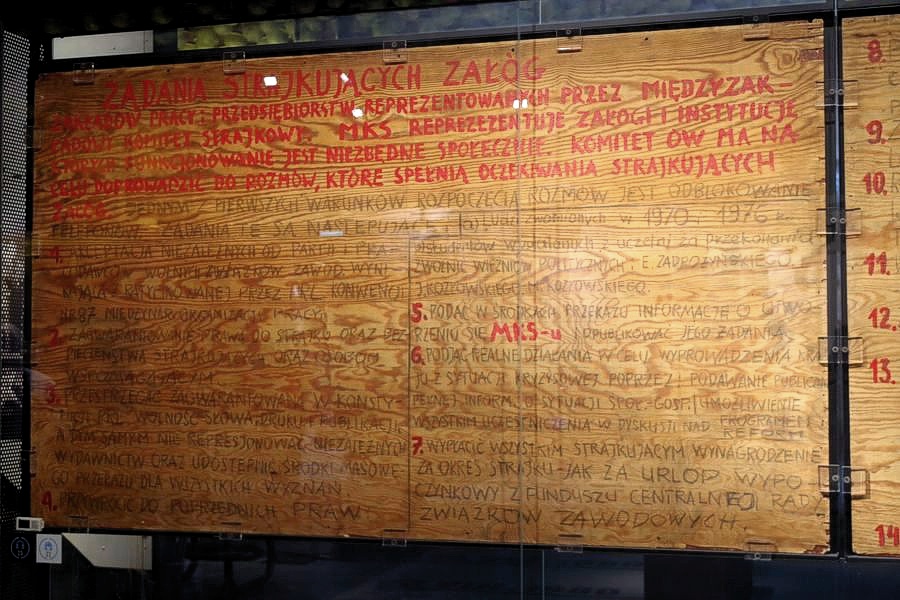 ŻĄDANIA STRAJKUJĄCYCH ZAŁÓG
ZAKŁADÓW PRACY I PRZEDSIĘBIORSTW REPREZENTOWANYCH PRZEZ MIĘDZYZAK-
ŁADOWY KOMITET STRAJKOWY. MKS REPREZENTUJE ZAŁOGI I INSTYTUCJE
KTÓRYCH FUNKCJONOWANIE JEST NIEZBĘDNE SPOŁECZNIE. KOMITET ÓW MA NA
CELU DOPROWADZIĆ DO ROZMÓW, KTÓRE SPEŁNIĄ OCZEKIWANIA STRAJKUJĄCYCH
ZAŁÓG. JEDNYM Z PIERWSZYCH WARUNKÓW ROZPOCZĘCIA ROZMÓW JEST ODBLOKOWANIE
TELEFONÓW. ŻĄDANIA TE SĄ NASTĘPUJĄCE
1. AKCEPTACJA NIEZALEŻNYCH OD PARTII I PRA-
CODAWCÓW WOLNYCH ZWIĄZKÓW ZAWOD. WYNI-
KAJĄCA Z RATYFIKOWANEJ PRZEZ PRL KONWENCJI
NR 87 MIĘDZYNAR. ORGANIZACJI PRACY
2. ZAGWARANTOWANIE PRAWA DO STRAJKU ORAZ BEZ-
PIECZEŃSTWA STRAJKUJĄCYM ORAZ OSOBOM
WSPOMAGAJĄCYM
3. PRZESTRZEGAĆ ZAGWARANTOWANĄ W KONSTY-
TUCJI PRL WOLNOŚĆ SŁOWA, DRUKU I PUBLIKACJI,
A TYM SAMYM NIE REPRESJONOWAĆ NIEZALEŻNYCH
WYDAWNICTW ORAZ UDOSTĘPNIĆ ŚRODKI MASOWE-
GO PRZEKAZU DLA WSZYSTKICH WYZNAŃ.
4. PRZYWRÓCIĆ DO POPRZEDNICH PRAW:
a) Ludzi zwolnionych w 1970 i 1976 r.
studentów wydalonych z uczelni za przekonania
ZWOLNIĆ WIĘŹNIÓW POLITYCZNYCH: E. ZADROŻYŃSKIEGO,
J. KOZŁOWSKIEGO M. KOZŁOWSKIEGO.
5. PODAĆ W ŚRODKACH PRZEKAZU INFORMACJĘ O UTWO-
RZENIU SIĘ MKS-u I OPUBLIKOWAĆ JEGO ŻĄDANIA.
6. PODJĄĆ REALNE DZIAŁANIA W CELU WYPROWADZENIA KRA-
JU Z SYTUACJI KRYZYSOWEJ POPRZEZ: PODAWANIE PUBLICZN.
PEŁNEJ INFORM. O SYTUACJI SPOŁ.-GOSP. UMOŻLIWIENIE
WSZYSTKIM UCZESTNICZENIA W DYSKUSJI NAD PROGRAMEM
REFORM
7. WYPŁACIĆ WSZYSTKIM STRAJKUJĄCYM WYNAGRODZENIE
ZA OKRES STRAJKU - JAK ZA URLOP WYPO-
CZYNKOWY Z FUNDUSZU CENTRALNEJ RADY
ZWIĄZKÓW ZAWODOWYCH.
8.
9.
10.
11.
12.
13.
14